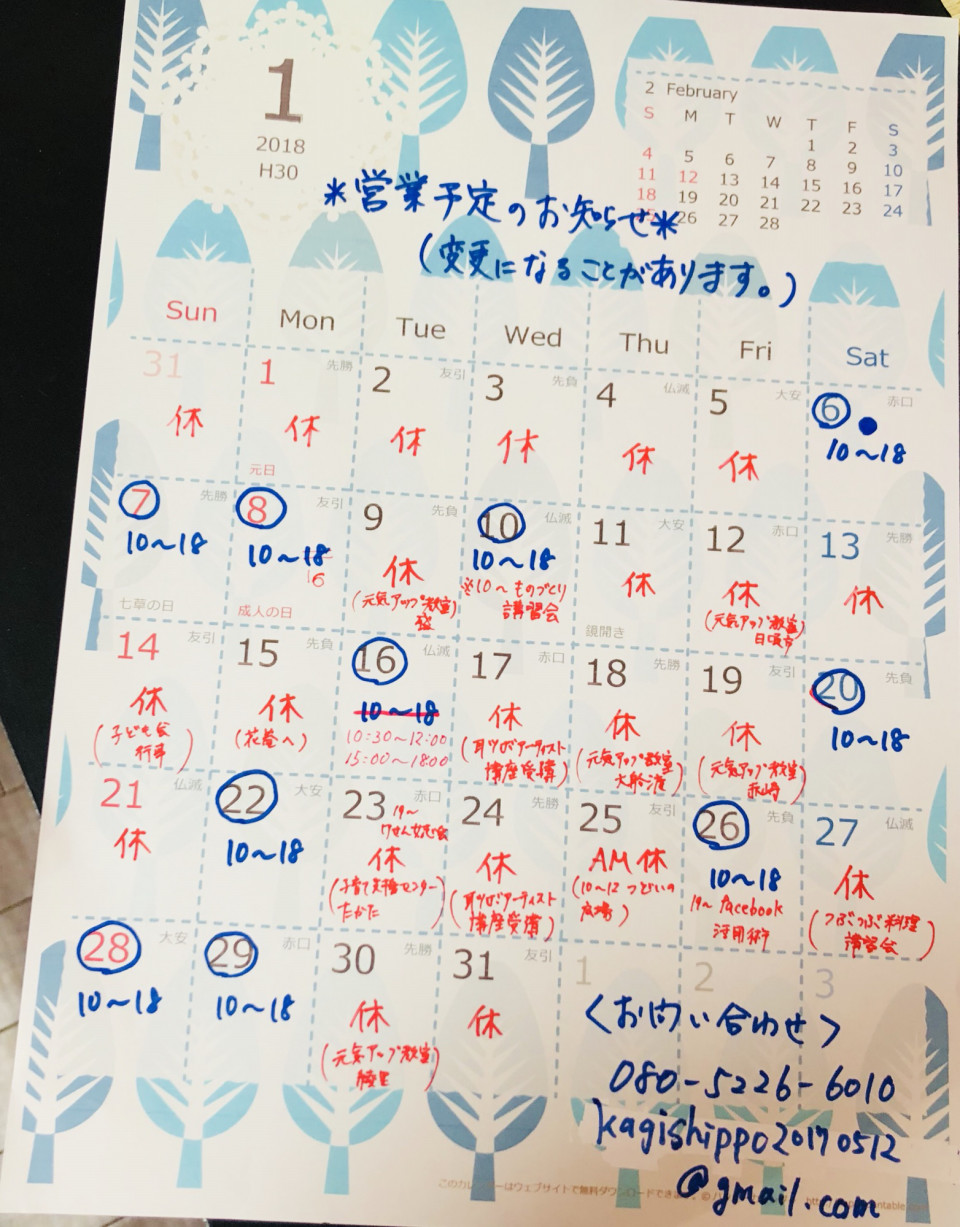 1
2018
H30
2 February
S M T W T F S
1 2 3
4 5 6 7 8 9 10
11 12 13 14 15 16 17
18 19 20 21 22 23 24
26 27 28
*営業予定のお知らせ*
(変更になることがあります。)
Sun Mon Tue Wed Thu Fri Sat
31
休
1 先勝
休
元日
2 友引
休
3 先負
休
4 仏滅
休
5 大安
休
6 赤口
10〜18
7 先勝
10〜18
七草の日
8 友引
10〜18
6
成人の日
9 先負
休
(元気アップ教室)
10 仏滅
10〜18
※10〜ものづくり
講習会
11 大安
休
鏡開き
12 赤口
休
(元気アップ教室)
日頃市
13 先勝
休
14 友引
休
(子ども会
行事)
15 先負
休
(花巻へ)
16 仏滅
10〜18
10:30〜12:00
15:00〜18:00
17 赤口
休
(耳ツボアーティスト
講座受講)
18 先勝
休
(元気アップ教室
大船渡)
19 友引
休
(元気アップ教室
赤崎)
20 先負
10〜18
21 仏滅
休
22 大安
10〜18
23 赤口
19〜
けせん女子会
休
(子育て支援センター
たかた)
24 先勝
休
(耳ツボアーティスト
講座受講)
25 友引
AM 休
(10〜12 つどいの
広場)
26 先負
10〜18
19〜 facebook
活用術
27 仏滅
休
(つぶつぶ料理
講習会)
28 大安
10〜18
29 赤口
10〜18
30 先勝
休
(元気アップ教室)
31 友引
休
1
2
3
<お問い合わせ>
080-5226-6010
kagishippo20170512
@gmail.com
このカレンダーはウェブサイトで無料ダウンロードでき